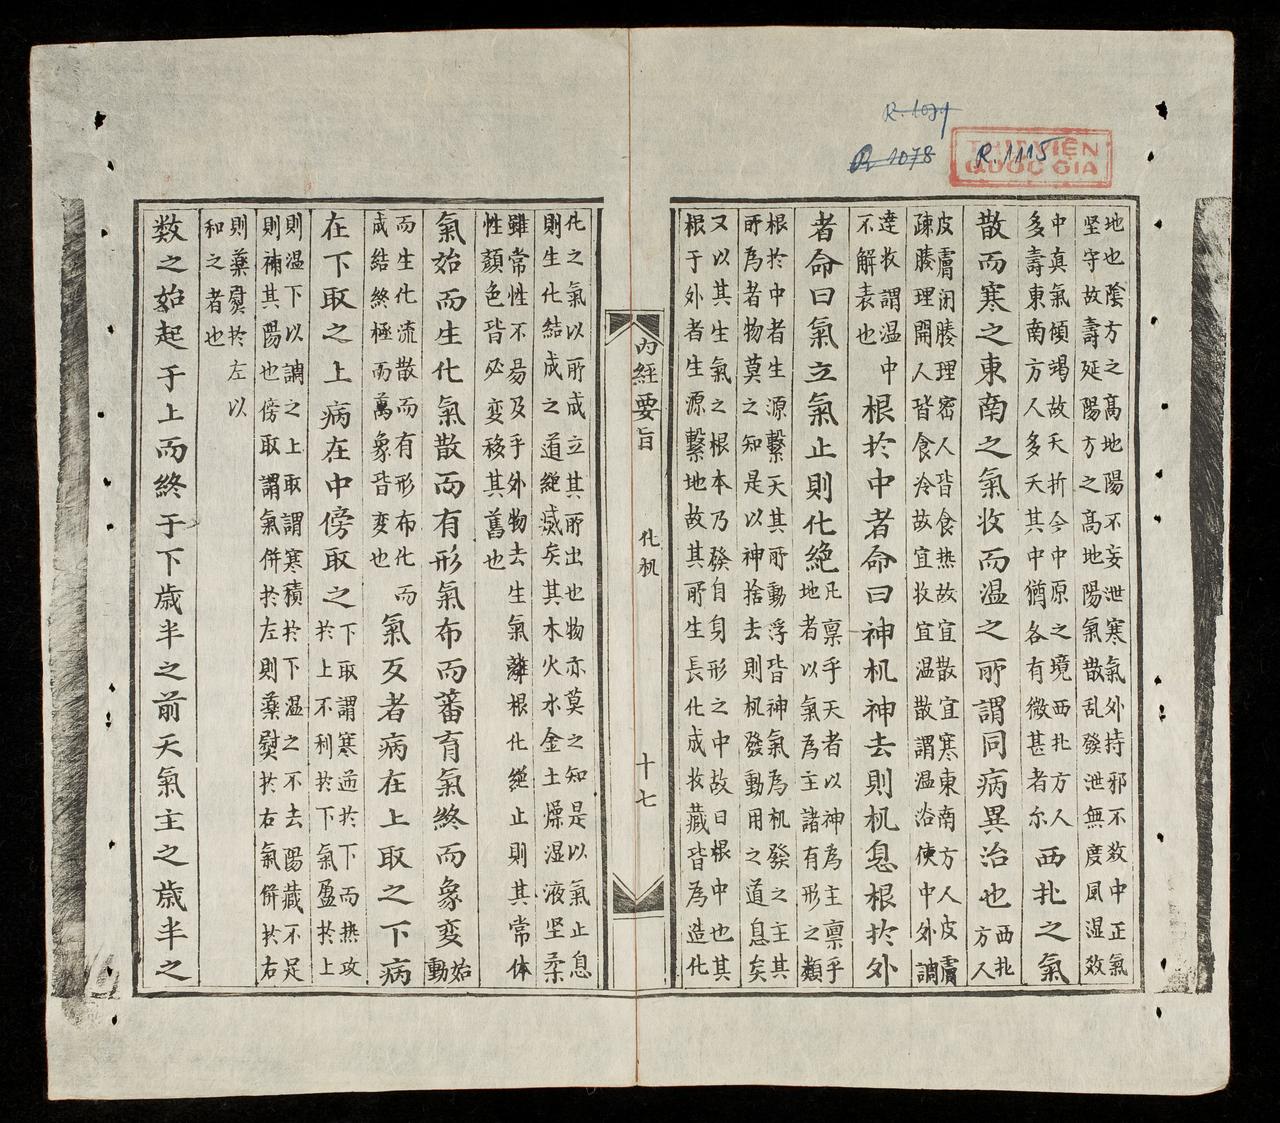 R.1115
THƯ VIỆN
QUỐC GIA
地也陰方之髙地陽不妄泄寒氣外持邪不数中正氣
坚守故壽延陽方之髙地陽氣散乱發泄無度風湿数
中真氣傾竭故夭折今中原之境西北方人
多壽東南方人多夭其中猶各有微甚者尓
西北之氣
散而寒之東南之氣收而温之所謂同病異治也
西北
方人
皮膚闭腠理密人皆食热故宜散宜寒東南方人皮膚
疎腠理開人皆食冷故宜收宜温散謂温浴使中外調
逹收謂温中
不解表也
根於中者命曰神机神去則机息根於外
者命曰氣立氣止則化绝
凢禀乎天者以神為主禀乎
地者以氣為主諸有形之類
根於中者生源繫天其所動浮皆神氣為机發之主其
所為者物莫之知是以神捨去則机發動用之道息矣
又以其生氣之根本乃發自身形之中故曰根中也其
根于外者生源繫地故其所生長化成收藏皆為造化
内經要旨 化机 十七
化之氣以所成立其所出也物亦莫之知是以氣止息
則生化結成之道絶矣其木火水金土燥湿液坚柔
雖常性不易及乎外物去生氣離根化絕止則其常体
性顏色皆必变移其舊也
氣始而生化氣散而有形氣布而蕃育氣終而象变
始
動
而生化流散而有形布化而
成結終極而萬象皆变也
氣反者病在上取之下病
在下取之上病在中傍取之
下取謂寒於下而热攻
於上不利於下氣盈於上
則温下以調之上取謂寒積於下温之不去陽藏不足
則補其陽也傍取謂氣併於左則藥熨於右氣併於右
則藥熨於左以
和之者也
数之始起于上而終于下歲半之前天氣主之歲半之